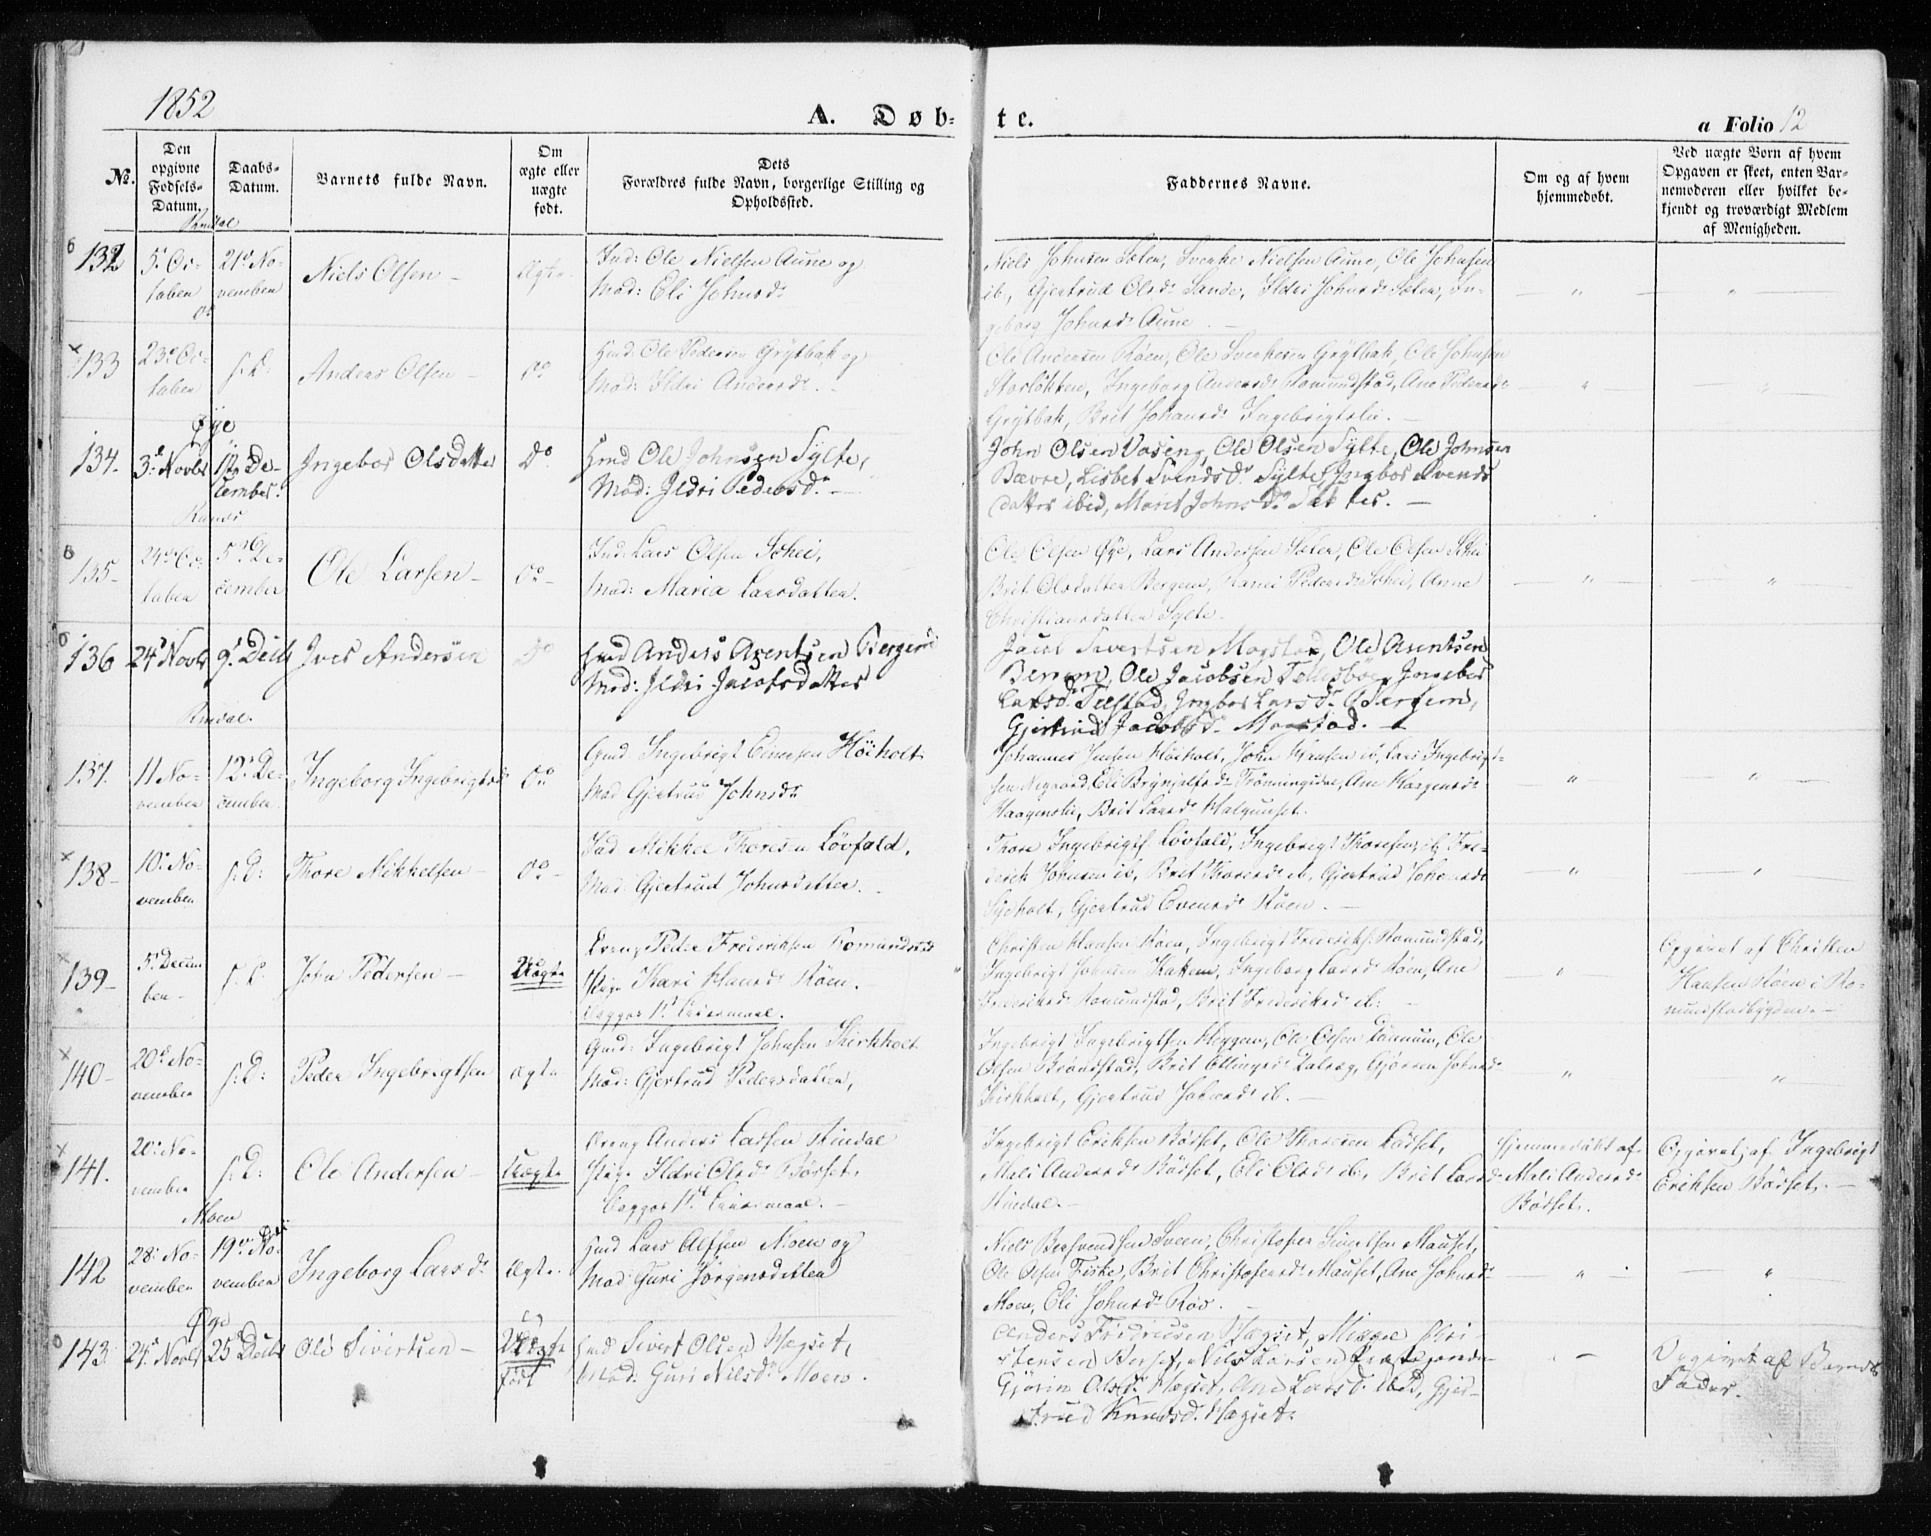 1852
A. Døb-
te.
a Folio 12
No.
Den opgivne Fødsels-Datum.
Daabs-Datum.
Barnets fulde Navn.
Om ægte eller uægte født.
Dets Forældres fulde Navn, borgerlige Stilling og Opholdssted.
Faddernes Navne.
Om og af hvem hjemmedøbt.
Ved uægte Børn af hvem Opgaven er skeet, enten Barnemoderen eller hvilket bekjendt og troværdigt Medlem af Menigheden.
Rindal
132 5 October 21de November Niels Olsen Ægte
Ind: Ole Nielsen Aune og
Mod: Eli Johnsd.
Niels Johnsen Sæter, Svenke Nielsen Aune, Ole Johnsen
ib, Gjertrud Olsd. Sande, Ildri Johnsd. Sæter, In-
geborg Johnsd. Aune.
133 23de October s. D: Anders Olsen Do
Gmd: Ole Pedersen Grytbak og
Mod: Ildri Andersd.
Ole Andersen Røen, Ole Svenkesen Grytbak, Ole Johnsen
Storløkken, Ingeborg Andersd. Romundstad, Ane Pedersd.
Grytbak, Brit Johansd. Ingebrigtslie.
Øye
134. 3de Novbr December. Ingebor Olsdatter Do
Gmd Ole Johnsen Sylte,
Mod: Ildri Pedersd.
John Olsen Vaseng, Ole Olsen Sylte, Ole Johnsen
Bævre, Lisbet Svendsd. Sylte, Ingbor Svends
datter ibid, Marit Johnsd. Sæter.
135 24de October 5te December Ole Larsen Do
Ind: Lars Olsen Schei,
Mod: Maria Larsdatter.
Ole Olsen Øye, Lars Andersen Sæter, Ole Olsen Schei
Brit Olsdatter Bergem, Marit Pedersd. Schei, Anne
Christiansdatter Sylte.
136 24de Novbr 9de Decbr Iver Andersen Do
Gmd Anders Arentsen Bergem
Mod: Ildri Jacobsdatter
Jacob Sivertsen Mogstad, Ole Arentsen
Bergem, Ole Jacobsen Tellesbøe, Ingebor
Larsd. Telstad, Ingbor Larsd. Bergem,
Gjertrud Jacobsd. Mogstad.
Rindal.
137. 11 November 12te December Ingeborg Ingebrigtsd. Do
Gmd Ingebrigt Evensen Høiholt
Mod Gjertrud Johnsd.
Johannes Jensen Høiholt, John Hansen ib, Lars Ingebrigt-
sen Negaard, Eli Brynjulfsd. Trønningsdal, Ane Hagensd.
Haagenslie, Brit Larsd. Halgunset.
138 10de November s: D: Thore Mikkelsen Do
Ind Mikkel Thoresen Løvfald,
Mod: Gjertrud Johnsdatter.
Thore Ingebrigts. Løvfald, Ingebrigt Thoresen ib, Fre-
derik Johnsen ib, Brit Thoresd. ib, Gjertrud Johansd.
Gjertrud Evensd. Røen.
139 5te December s. D. John Pedersen Uægte
Peder Frederiksen Romundstad
Pige Kari Hansd. Røen.
Begges 1st Leiermaal.
Christen Hansen Røen, Ingebrigt Frederiks. Romundstad,
Ingebrigt Johnsen Kattem, Ingeborg Larsd. Røen, Ane
Frederiksd. Romundstad, Brit Frederiksd. ib.
Opgivet af Christen
Hansen Røen i Ro-
mundstadbygden.
140 20de November s: D: Peder Ingebrigtsen Ægte
Gmd: Ingebrigt Johnsen Kirkholt
Mod: Gjertrud Pedersdatter,
Ingebrigt Ingebrigtsen Heggem, Ole Olsen Tannum, Ole
Olsen Brøndstad, Brit Ellingsd. Gjøren Johnsd.
Kirkholt, Gjertrud Johnsd. ib.
141. 20de November s: D: Ole Andersen Uægte
Dreng Anders Larsen Rindal
Pige Ildri Olsd. Børset,
Begges 1st Leiermaal.
Ingebrigt Eriksen Børset, Ole Thoresen
Mali Andersd. Børset, Eli Olsd. ib, Brit Larsd.
Rindal.
Hjemmedøbt af
Mali Andersd.
Børset.
Opgivet af Ingebrigt
Eriksen Børset.
Moen
142 28de November 19de November Ingeborg Larsd. Ægte
Gmd Lars Olsen Moen og
Mod: Guri Jørgensdatter
Niels Bersvendsen Sveen, Christopher Sivertsen Mauset,
Ole Olsen Fiske, Brit Christophersd. Mauset, Ane Johnsd.
Moen, Eli Johnsd. Røv.
Øye
143. 24de Novbr 25de Decbr Ole Sivertsen Uægte født
Gmd Sivert Olsen Hægset,
Mod: Guri Nilsd. Moen.
Anders Fredriksen Hægset, Mikkel Chri-
stensen Børset, Nils Larsen
Gjørin Olsd. Hægset, Ane Larsd. ibid, Gjer-
trud Knudsd. Hægset.
Opgivet af Barnets
Fader.